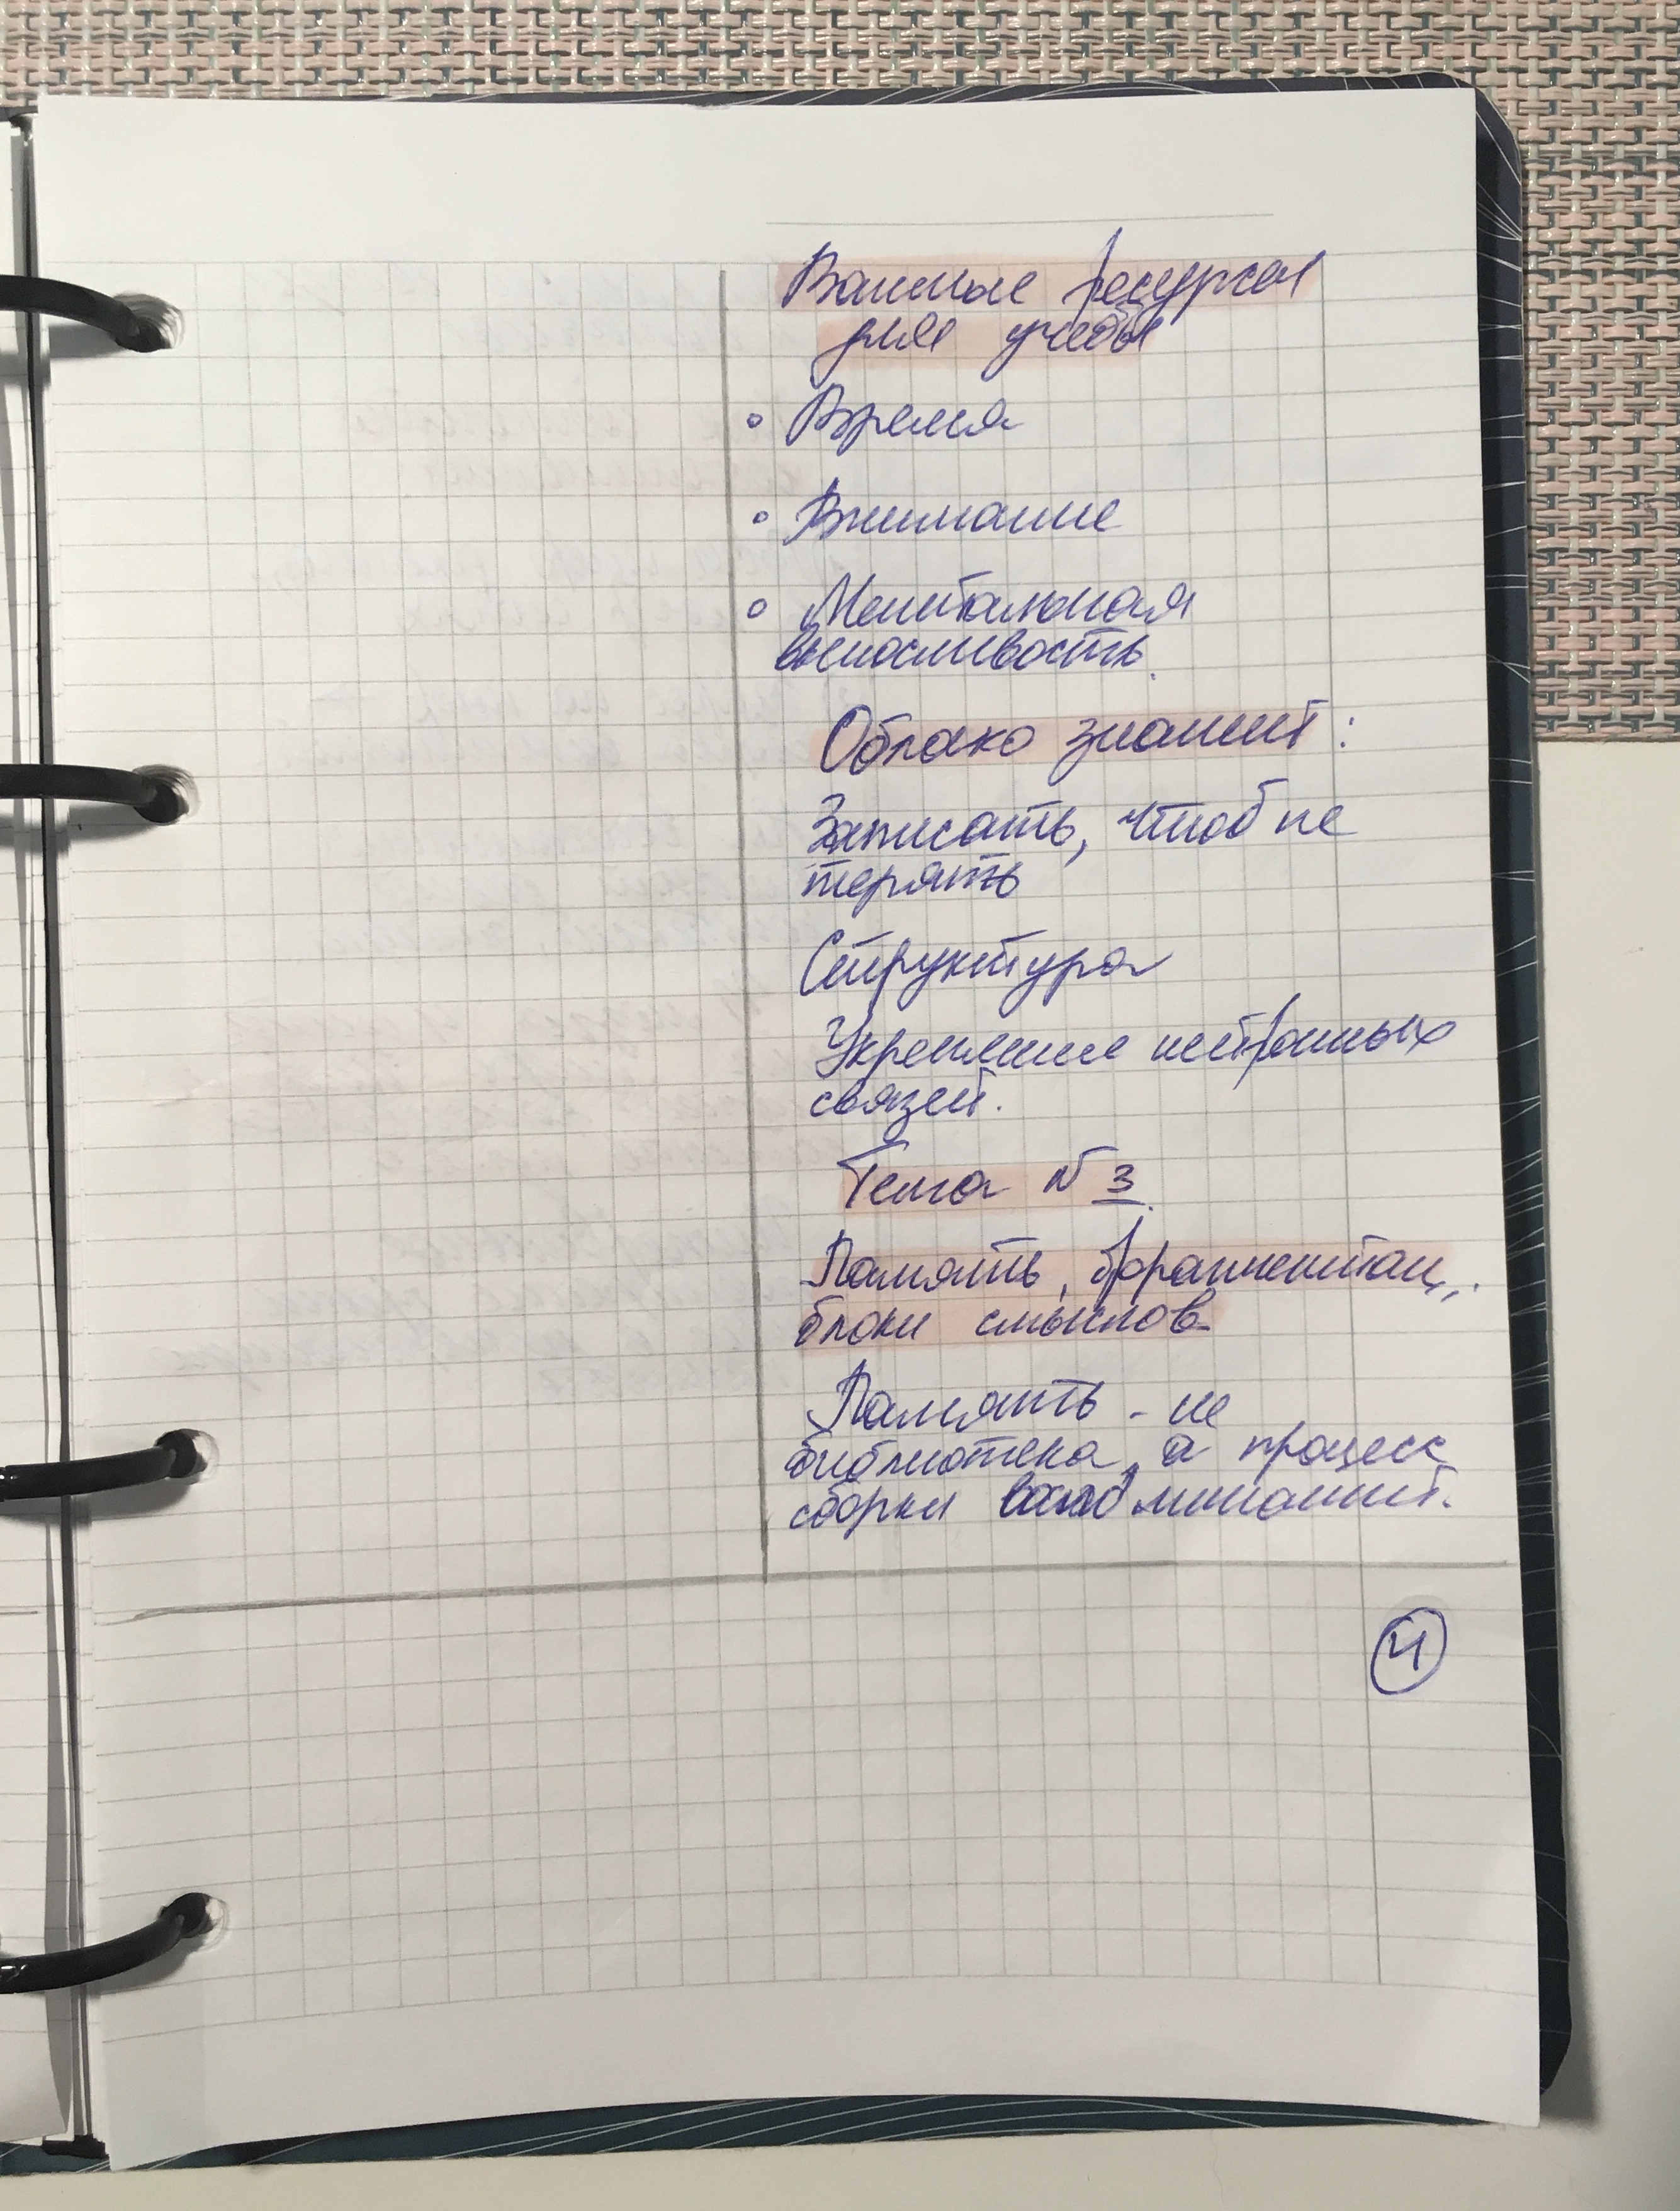 Важные ресурсы
для учебы
◦ Время
◦ Внимание
◦ Ментальная
выносливость.
Облако знаний:
Записать, чтоб не
терять
Структура
Укрепление нейронных
связей.
Тема № 3.
Память, фрагментац.,
блоки смыслов
Память - не
библиотека, а процесс
сборки воспоминаний.
4